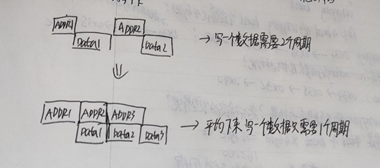 ADDR1 ADDR2
Data1 Data2
→写一个数据需要2个周期
ADDR1 ADDR2 ADDR3
Data1 Data2 Data3
→平均下来写一个数据只需要1个周期